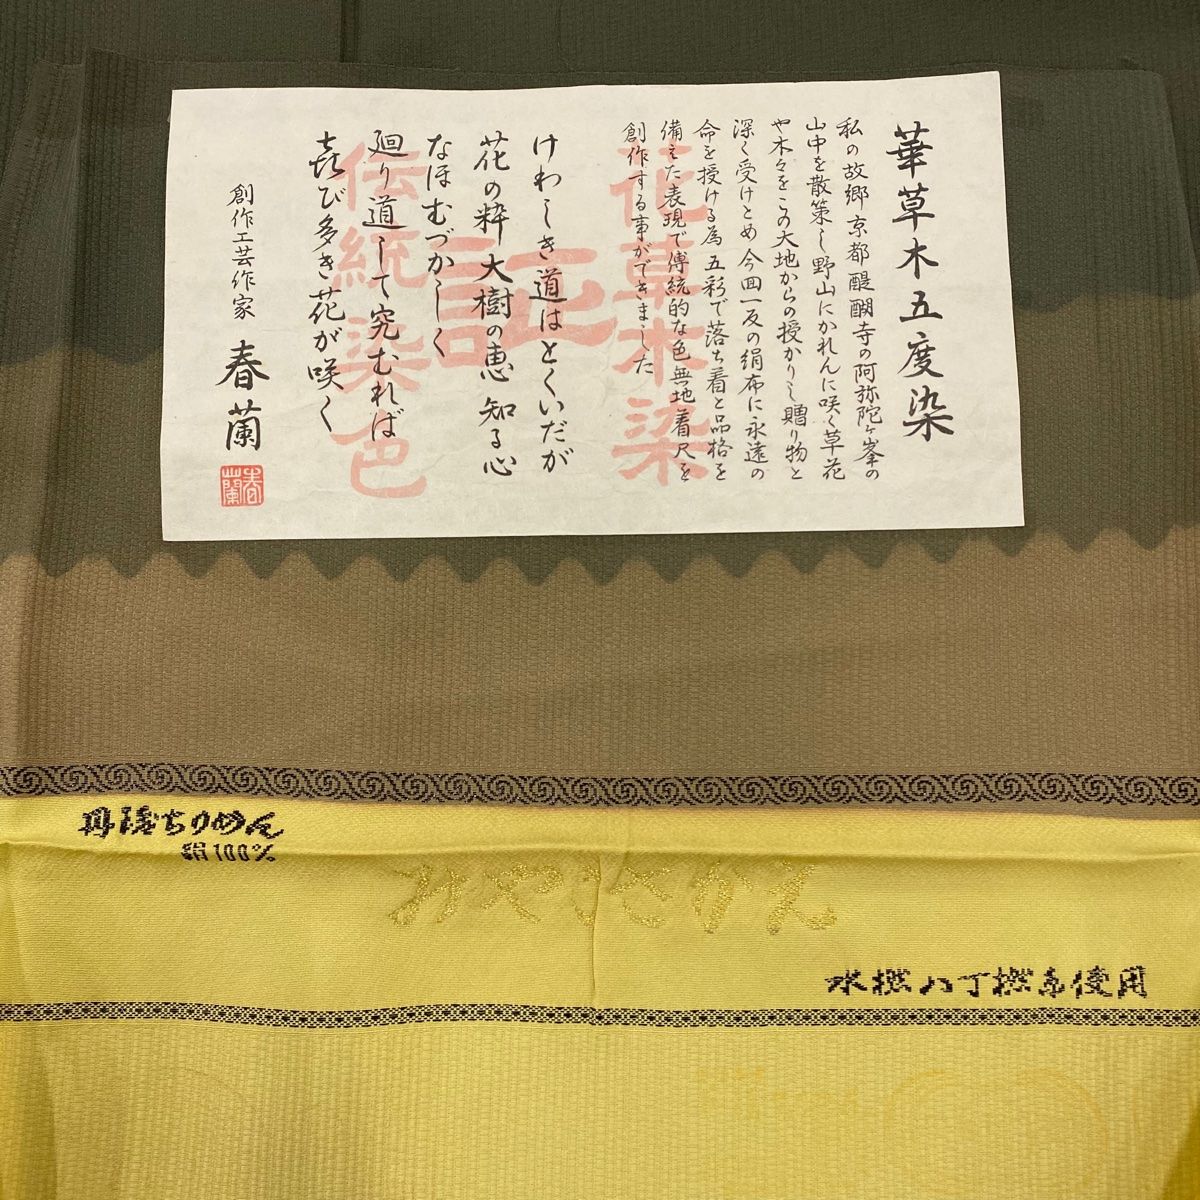 華草木五度染
私の故郷京都醍醐寺の阿弥陀ヶ峯の
山中を散策し野山にかれんに咲く草花
や木々をこの大地からの授かりし贈り物と
深く受けとめ今回一反の絹布に永遠の
命を授ける為五彩で落ち着と品格を
備えた表現で傳統的な色無地着尺を
創作する事ができました
けわしき道はとくいだが
花の粋大樹の恵知る心
なほむづかしく
廻り道して究むれば
㐂び多き花が咲く
創作工芸作家 春蘭
春蘭
花草木染
証
伝統染色
丹後ちりめん
絹100%
みやこさかえ
水撚八丁撚糸使用